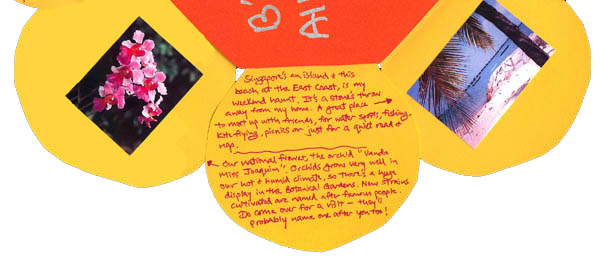 Singapore's an island & this
beach at the East Coast, is my
weekend haunt. It's a stone's throw
away from my home. A great place →
to meet up with friends, for water sports, fishing,
kite-flying, picnics or just for a quiet read &
nap.
← Our national flower, the orchid "Vanda
Miss Joaquim". Orchids grow very well in
our hot & humid climate, so there's a huge
display in the Botanical Gardens. New strains
cultivated are named after famous people.
Do come over for a visit – they'll
probably name one after you too!